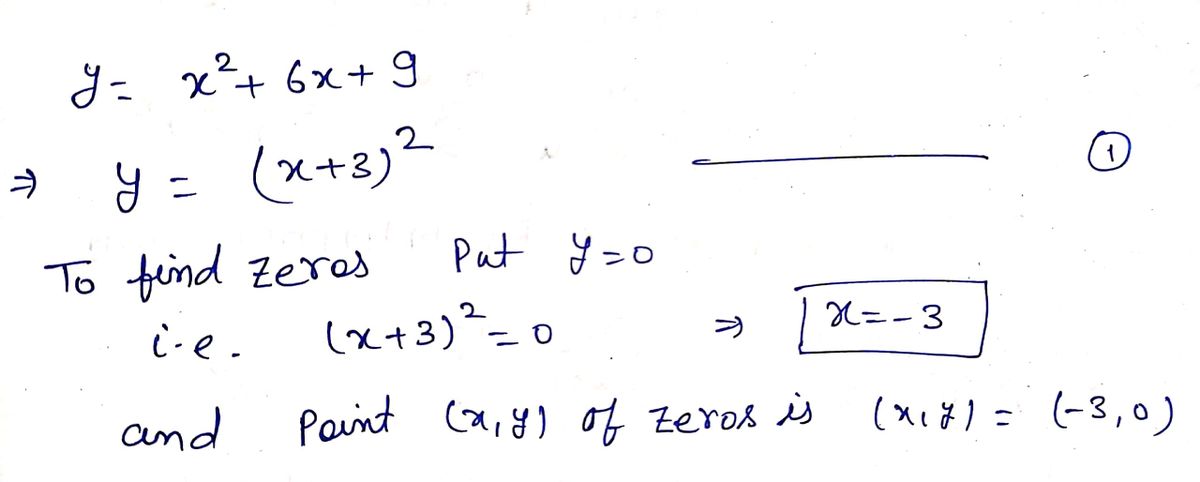 y = x² + 6x + 9
⇒ y = (x+3)² ——— ①
To find zeros Put y=0
i.e. (x+3)² = 0 ⇒ x=-3
and Point (x,y) of zeros is (x,y) = (-3,0)